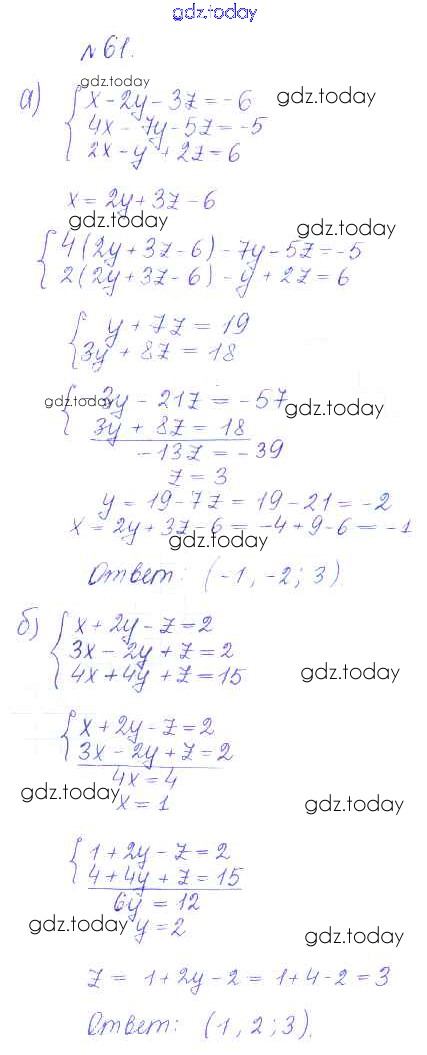 gdz.today
№61.
gdz.today
а) { x - 2y - 3z = -6
gdz.today
4x - 7y - 5z = -5
2x - y + 2z = 6
x = 2y + 3z - 6
gdz.today
gdz.today
{ 4(2y + 3z - 6) - 7y - 5z = -5
2(2y + 3z - 6) - y + 2z = 6
{ y + 7z = 19
3y + 8z = 18
gdz.today
{ -3y - 21z = -57
gdz.today
3y + 8z = 18
-13z = -39
z = 3
y = 19 - 7z = 19 - 21 = -2
x = 2y + 3z - 6 = -4 + 9 - 6 = -1
gdz.today
Ответ: (-1, -2; 3).
б) { x + 2y - z = 2
3x - 2y + z = 2
4x + 4y + z = 15
gdz.today
{ x + 2y - z = 2
3x - 2y + z = 2
4x = 4
gdz.today
x = 1
gdz.today
{ 1 + 2y - z = 2
4 + 4y + z = 15
6y = 12
gdz.today
y = 2
gdz.today
z = 1 + 2y - 2 = 1 + 4 - 2 = 3
Ответ: (1, 2; 3).